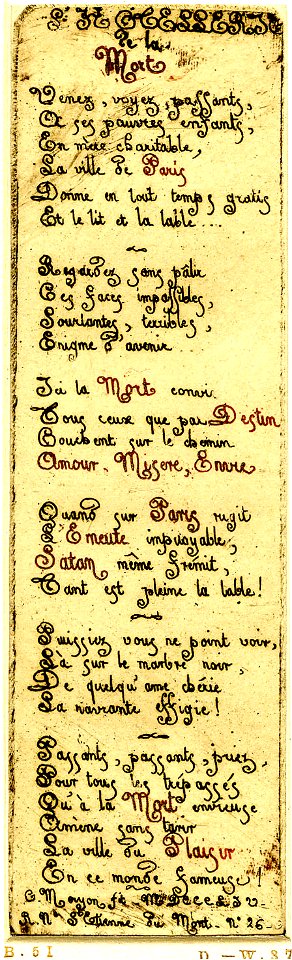 L'HOTELLERIE
De la
Mort
Venez, voyez, passants,
A ses pauvres enfants,
En mère charitable,
La ville de Paris
Donne en tout temps gratis
Et le lit et la table....
Regardez sans pâlir
Ces faces impassibles,
Souriantes, terribles,
Enigme d'avenir
Ici la Mort convie
Tous ceux que par Destin
Couchent sur le chemin
Amour, Misere, Envie
Quand sur Paris rugit
L'Emeute impitoyable,
Satan même fremit,
Tant est pleine la table!
Puissiez vous ne point voir,
Là sur le marbre noir,
De quelqu'ame chérie
La navrante effigie!
Passants, passants, priez,
Pour tous les trepassés
Qu'à la Mort envieuse
Amène sans tarir
La ville du Plaisir
En ce monde fameuse!
C. Meryon ft. MDCCCLIV
R. Ne. St. Etienne du Mont. No. 26.
B.51 D.-W.37